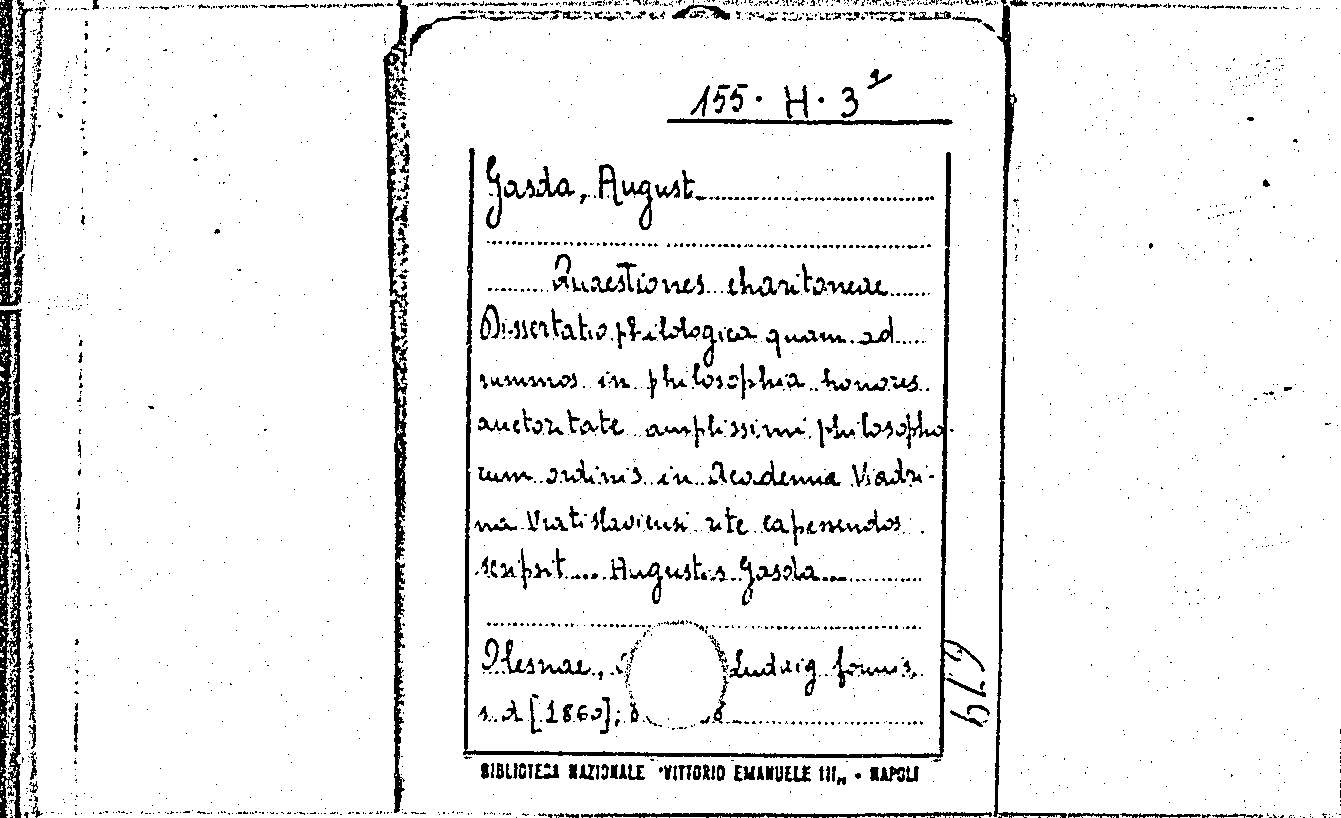 155. H. 3²
Gasda, August
Quaestiones charitoneae
Dissertatio philologica quam ad
summos in philosophia honores
auctoritate amplissimi philosopho-
rum ordinis in Academia Viadri-
na Vratislaviensi rite capessendos
scripsit ... Augustus Gasda...
Olesnae, Ludwig formis,
s. d [1860]; 8
BIBLIOTECA NAZIONALE "VITTORIO EMANUELE III„ - NAPOLI
679